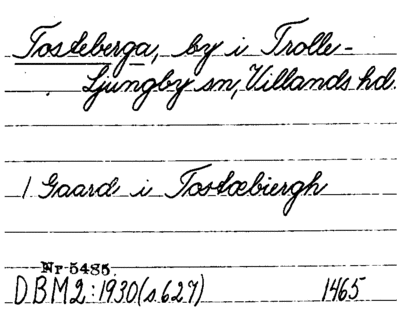 Tosteberga, by i Trolle-
Ljungby sn, Villands hd.
1 Gaard i Tostæbiergh
Nr 5485.
DBM2:1930(s.627) 1465